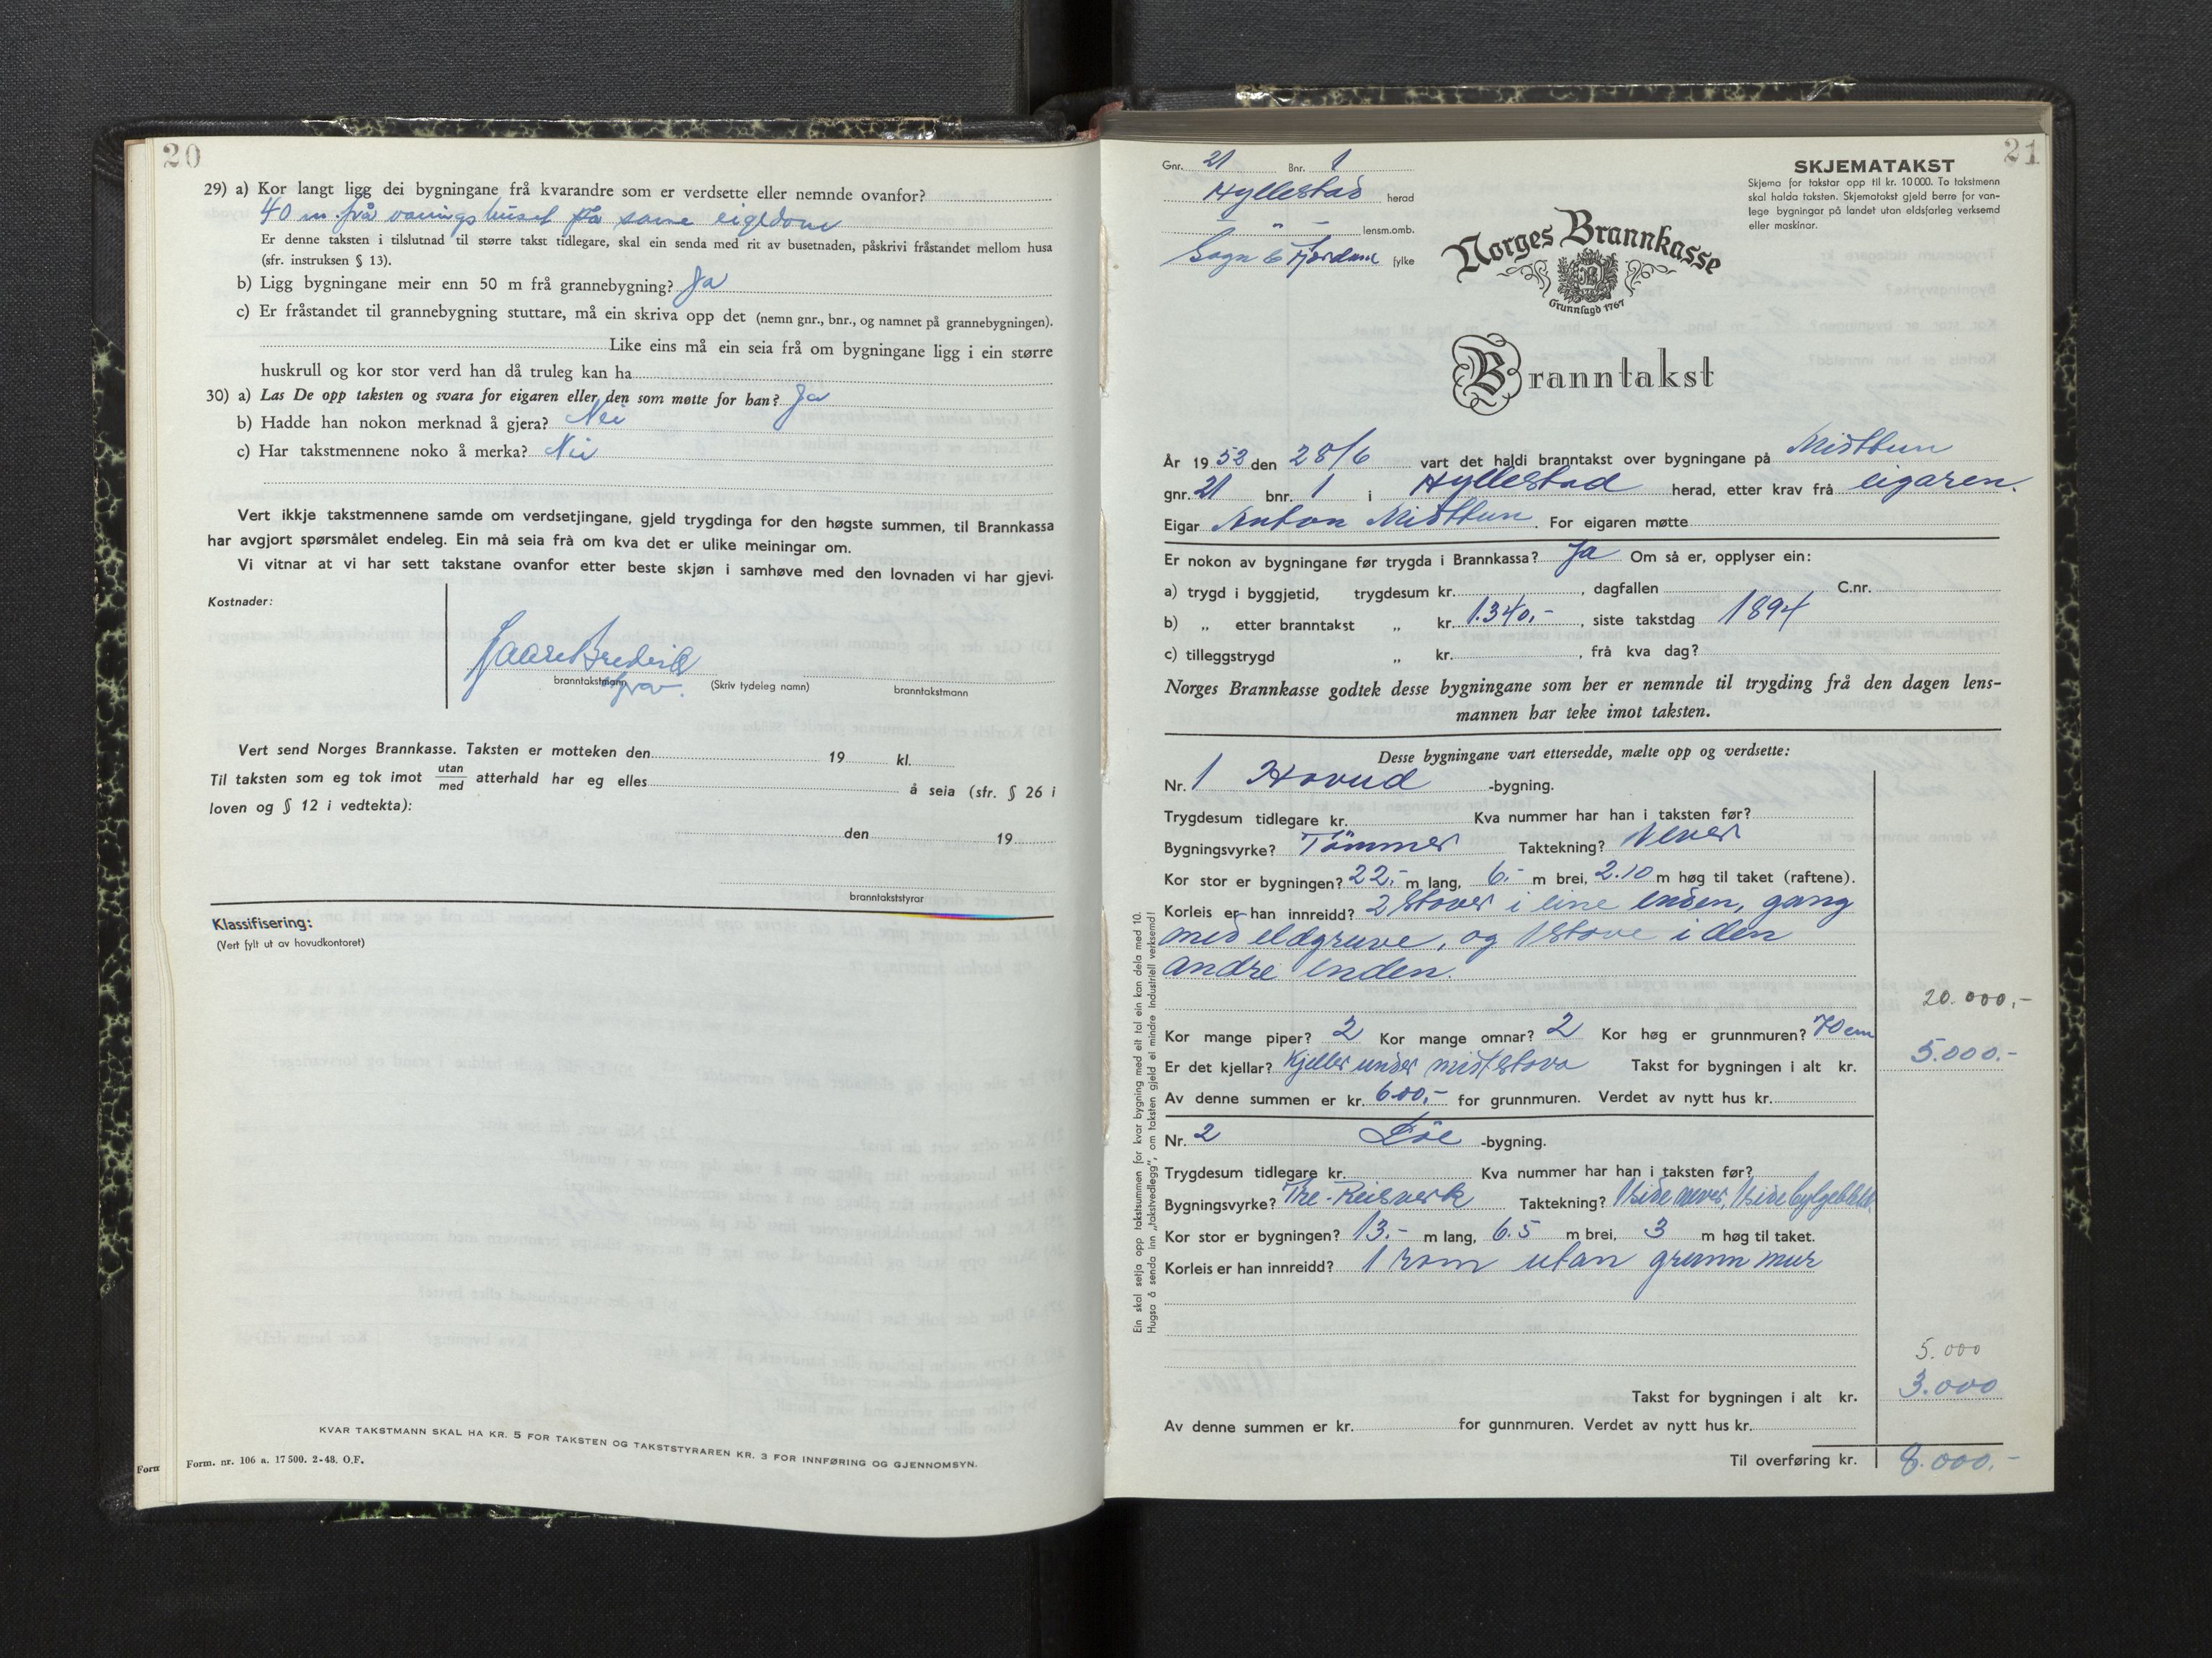 20
29) a) Kor langt ligg dei bygningane frå kvarandre som er verdsette eller nemnde ovanfor?
40 m frå vaningshuset på same eigedom
Er denne taksten i tilslutnad til større takst tidlegare, skal ein senda med rit av busetnaden, påskrivi fråstandet mellom husa
(sfr. instruksen § 13).
b) Ligg bygningane meir enn 50 m frå grannebygning? Ja
c) Er fråstandet til grannebygning stuttare, må ein skriva opp det (nemn gnr., bnr., og namnet på grannebygningen).
Like eins må ein seia frå om bygningane ligg i ein større
huskrull og kor stor verd han då truleg kan ha
30) a) Las De opp taksten og svara for eigaren eller den som møtte for han? Ja
b) Hadde han nokon merknad å gjera? Nei
c) Har takstmennene noko å merka? Nei
Vert ikkje takstmennene samde om verdsetjingane, gjeld trygdinga for den høgste summen, til Brannkassa
har avgjort spørsmålet endeleg. Ein må seia frå om kva det er ulike meiningar om.
Vi vitnar at vi har sett takstane ovanfor etter beste skjøn i samhøve med den lovnaden vi har gjevi.
Kostnader:
branntakstmann (Skriv tydeleg namn) branntakstmann
Vert send Norges Brannkasse. Taksten er motteken den 19 kl.
Til taksten som eg tok imot utan/med atterhald har eg elles å seia (sfr. § 26 i
loven og § 12 i vedtekta):
den 19
branntakststyrar
Klassifisering:
(Vert fylt ut av hovudkontoret)
KVAR TAKSTMANN SKAL HA KR. 5 FOR TAKSTEN OG TAKSTSTYRAREN KR. 3 FOR INNFØRING OG GJENNOMSYN.
Form
Form. nr. 106 a. 17 500. 2-48. O.F.
21
Gnr. 21 Bnr. 1
Hyllestad herad
" lensm.omb.
Sogn & Fjordane fylke
SKJEMATAKST
Skjema for takstar opp til kr. 10 000. To takstmenn
skal halda taksten. Skjematakst gjeld berre for van-
lege bygningar på landet utan eldsfarleg verksemd
eller maskinar.
Norges Brannkasse
Grunnlagd 1767
Branntakst
År 1952 den 28/6 vart det haldi branntakst over bygningane på Mistbun
gnr. 21 bnr. 1 i Hyllestad herad, etter krav frå eigaren.
Eigar Anton Mistbun. For eigaren møtte
Er nokon av bygningane før trygda i Brannkassa? Ja Om så er, opplyser ein:
a) trygd i byggjetid, trygdesum kr. , dagfallen C.nr.
b) „ etter branntakst „ kr. 1.340,- , siste takstdag 1894
c) tilleggstrygd „ kr. , frå kva dag?
Norges Brannkasse godtek desse bygningane som her er nemnde til trygding frå den dagen lens-
mannen har teke imot taksten.
Desse bygningane vart ettersedde, mælte opp og verdsette:
Nr. 1 Hovud -bygning.
Trygdesum tidlegare kr. Kva nummer har han i taksten før?
Bygningsvyrke? Tömmer Taktekning? Never
Kor stor er bygningen? 22,- m lang, 6,- m brei, 2.10 m høg til taket (raftene).
Korleis er han innreidd? 2 stover i eine enden, gang
med eldgruve, og 1 stove i den
andre enden.
20.000,-
Kor mange piper? 2 Kor mange omnar? 2 Kor høg er grunnmuren? 70 cm
Er det kjellar? Kjeller under midtstova Takst for bygningen i alt kr. 5.000.-
Av denne summen er kr. 600,- for grunnmuren. Verdet av nytt hus kr.
Nr. 2 Löe -bygning.
Trygdesum tidlegare kr. Kva nummer har han i taksten før?
Bygningsvyrke? Tre-Reisverk Taktekning? 1 side never, 1 side bylgeblekk.
Kor stor er bygningen? 13.- m lang, 6.5 m brei, 3 m høg til taket.
Korleis er han innreidd? 1 rom utan grunnmur
5.000
Takst for bygningen i alt kr. 3.000
Av denne summen er kr. for gunnmuren. Verdet av nytt hus kr.
Til overføring kr. 8.000.-
Ein skal setja opp takstsummen for kvar bygning med eit tal ein kan dela med 10.
Hugsa å senda inn „takstvedlegg", om taksten gjeld ei mindre industriell verksemd!